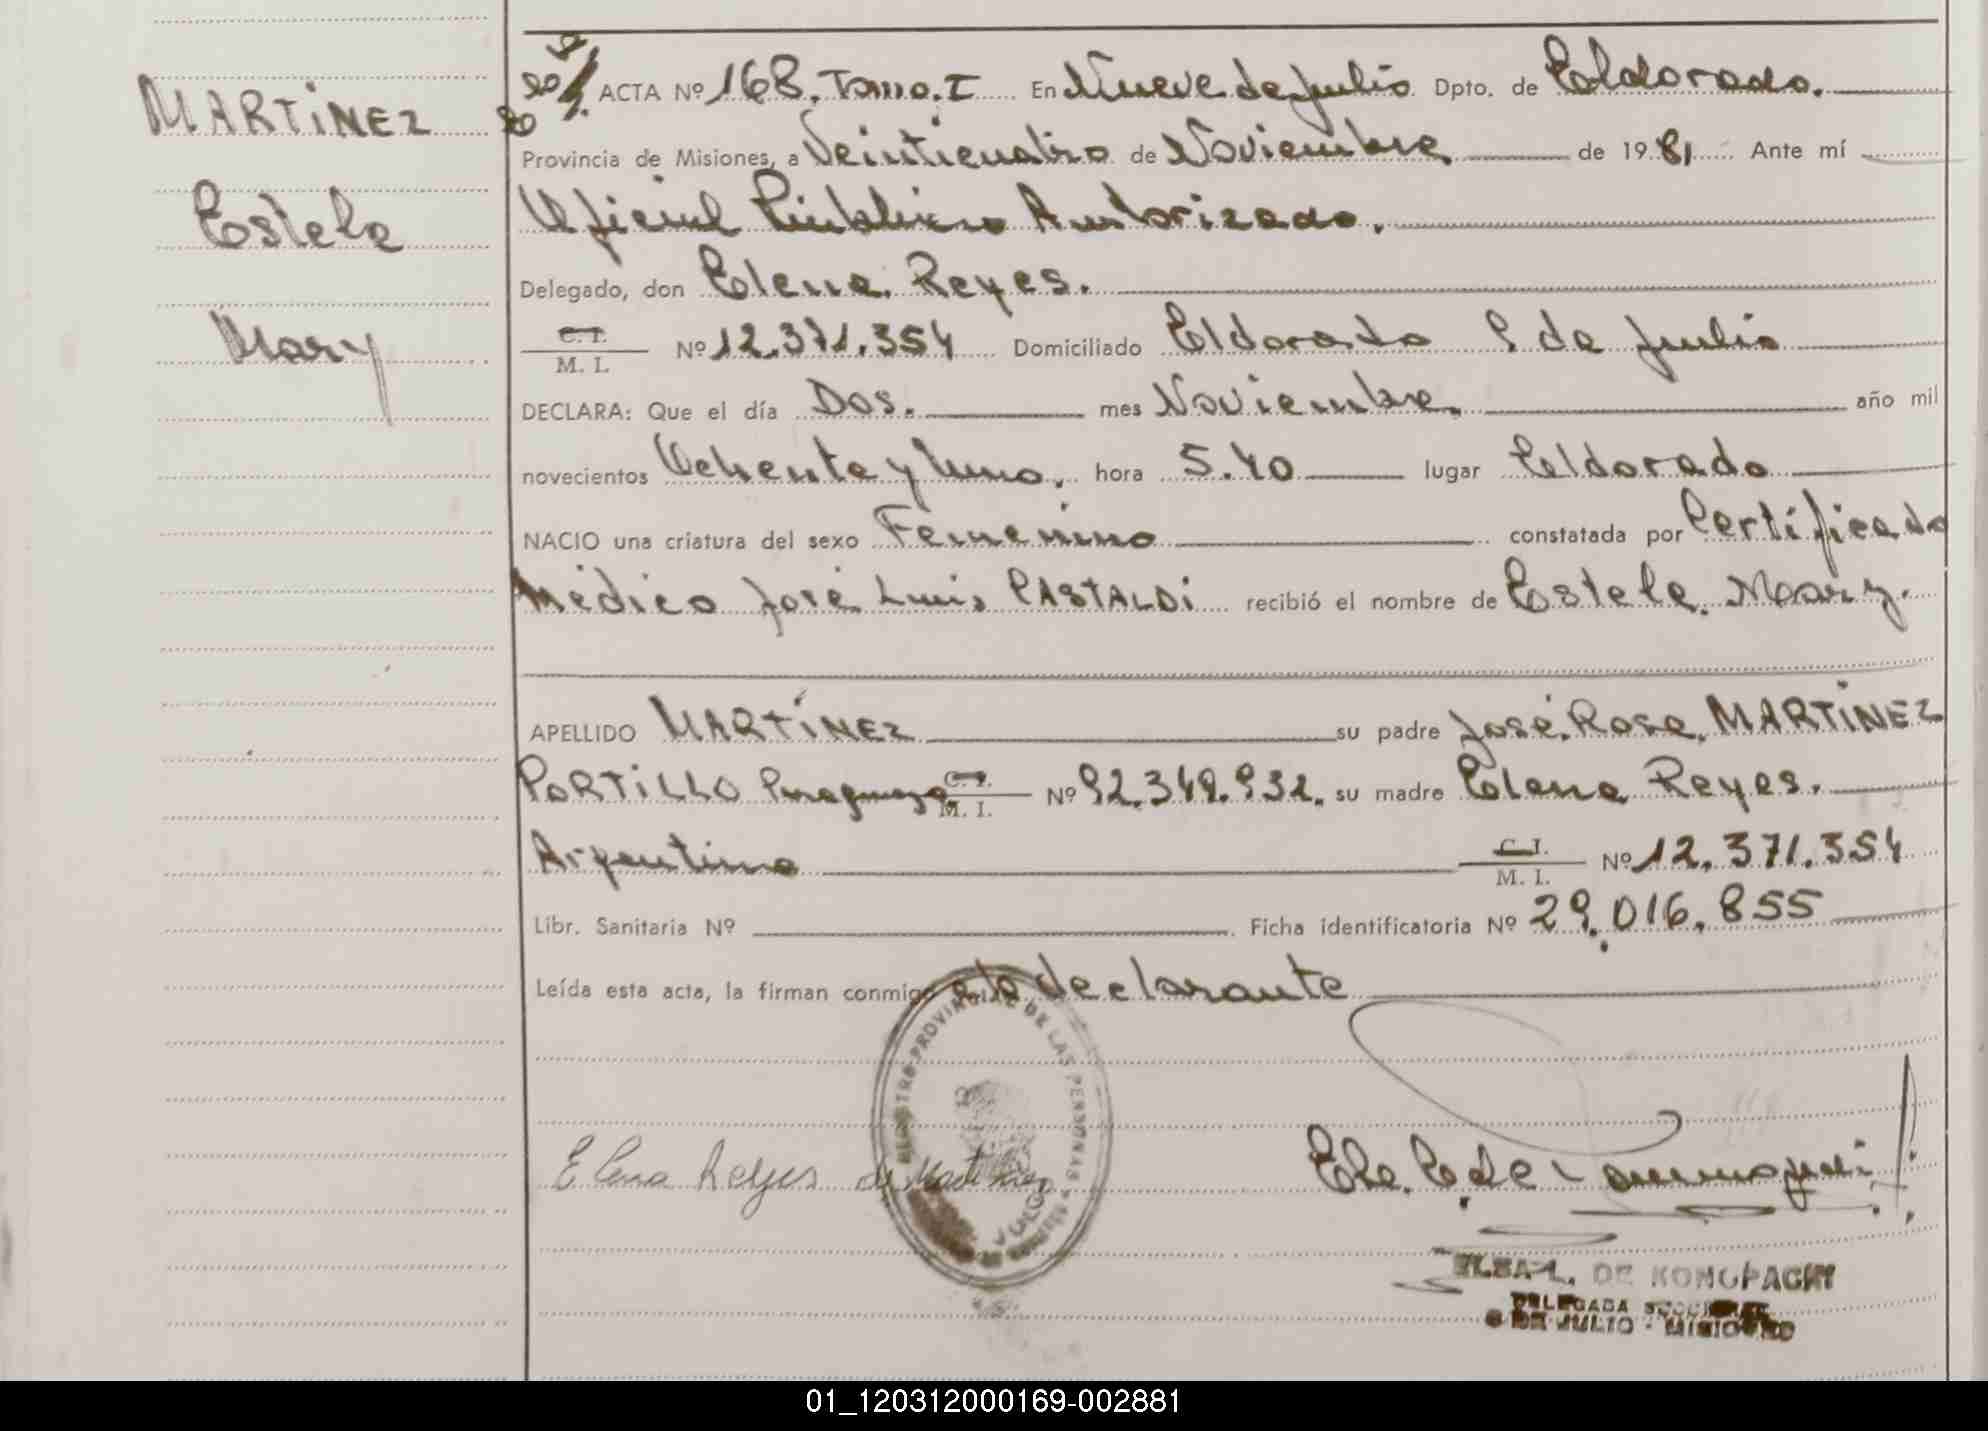 MARTÍNEZ
Estela
Mary
ACTA Nº 168. Tomo. I En Nueve de Julio Dpto. de Eldorado.
Provincia de Misiones, a Veinticuatro de Noviembre de 1981 Ante mí
Oficial Público Autorizado.
Delegado, don Elena Reyes.
C. I.
M. I. Nº 12.371.354 Domiciliado Eldorado 9 de Julio
DECLARA: Que el día Dos. mes Noviembre. año mil
novecientos Ochenta y Uno. hora 5.40 lugar Eldorado
NACIO una criatura del sexo Femenino constatada por Certificado
Médico José Luis CASTALDI recibió el nombre de Estela Mary.
APELLIDO MARTÍNEZ su padre José Rosa MARTÍNEZ
PORTILLO Paraguayo C. I. M. I. Nº 92.349.932. su madre Elena Reyes.
Argentina C. I. M. I. Nº 12.371.354
Libr. Sanitaria Nº Ficha identificatoria Nº 29.016.855
Leída esta acta, la firman conmigo la declarante
REGISTRO PROVINCIAL DE LAS PERSONAS
Elena Reyes de Martinez
ELBA L. DE KONOPACKI
DELEGADA SECCIONAL
9 DE JULIO - MISIONES
01_120312000169-002881